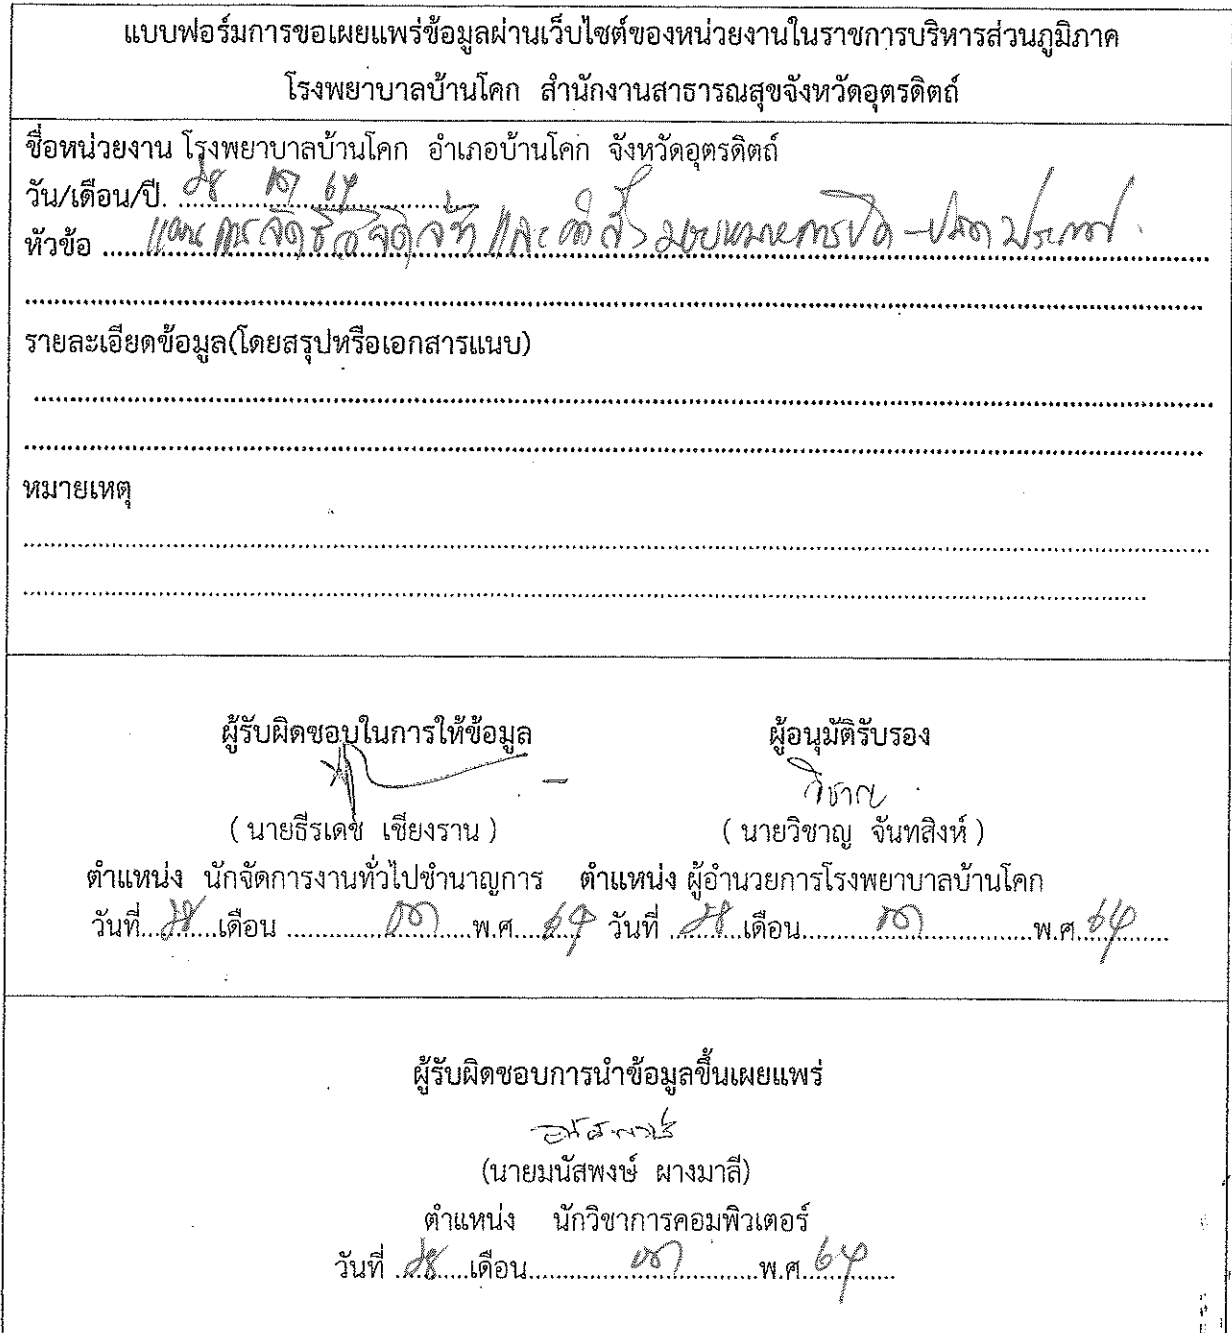 แบบฟอร์มการขอเผยแพร่ข้อมูลผ่านเว็บไซต์ของหน่วยงานในราชการบริหารส่วนภูมิภาค
โรงพยาบาลบ้านโคก สำนักงานสาธารณสุขจังหวัดอุตรดิตถ์
ชื่อหน่วยงาน โรงพยาบาลบ้านโคก อำเภอบ้านโคก จังหวัดอุตรดิตถ์
วัน/เดือน/ปี. 28 ตค 64
หัวข้อ แผนการจัดซื้อจัดจ้าง และคำสั่งมอบหมายการปิด-ปลดประกาศ
รายละเอียดข้อมูล(โดยสรุปหรือเอกสารแนบ)
หมายเหตุ
ผู้รับผิดชอบในการให้ข้อมูล ผู้อนุมัติรับรอง
วิชาญ
( นายธีรเดช เชียงราน ) ( นายวิชาญ จันทสิงห์ )
ตำแหน่ง นักจัดการงานทั่วไปชำนาญการ ตำแหน่ง ผู้อำนวยการโรงพยาบาลบ้านโคก
วันที่...28...เดือน ...ตค...พ.ศ...64 วันที่ ...28...เดือน...ตค...พ.ศ.64
ผู้รับผิดชอบการนำข้อมูลขึ้นเผยแพร่
(นายมนัสพงษ์ ผางมาลี)
ตำแหน่ง นักวิชาการคอมพิวเตอร์
วันที่ ...28...เดือน...ตค...พ.ศ.64